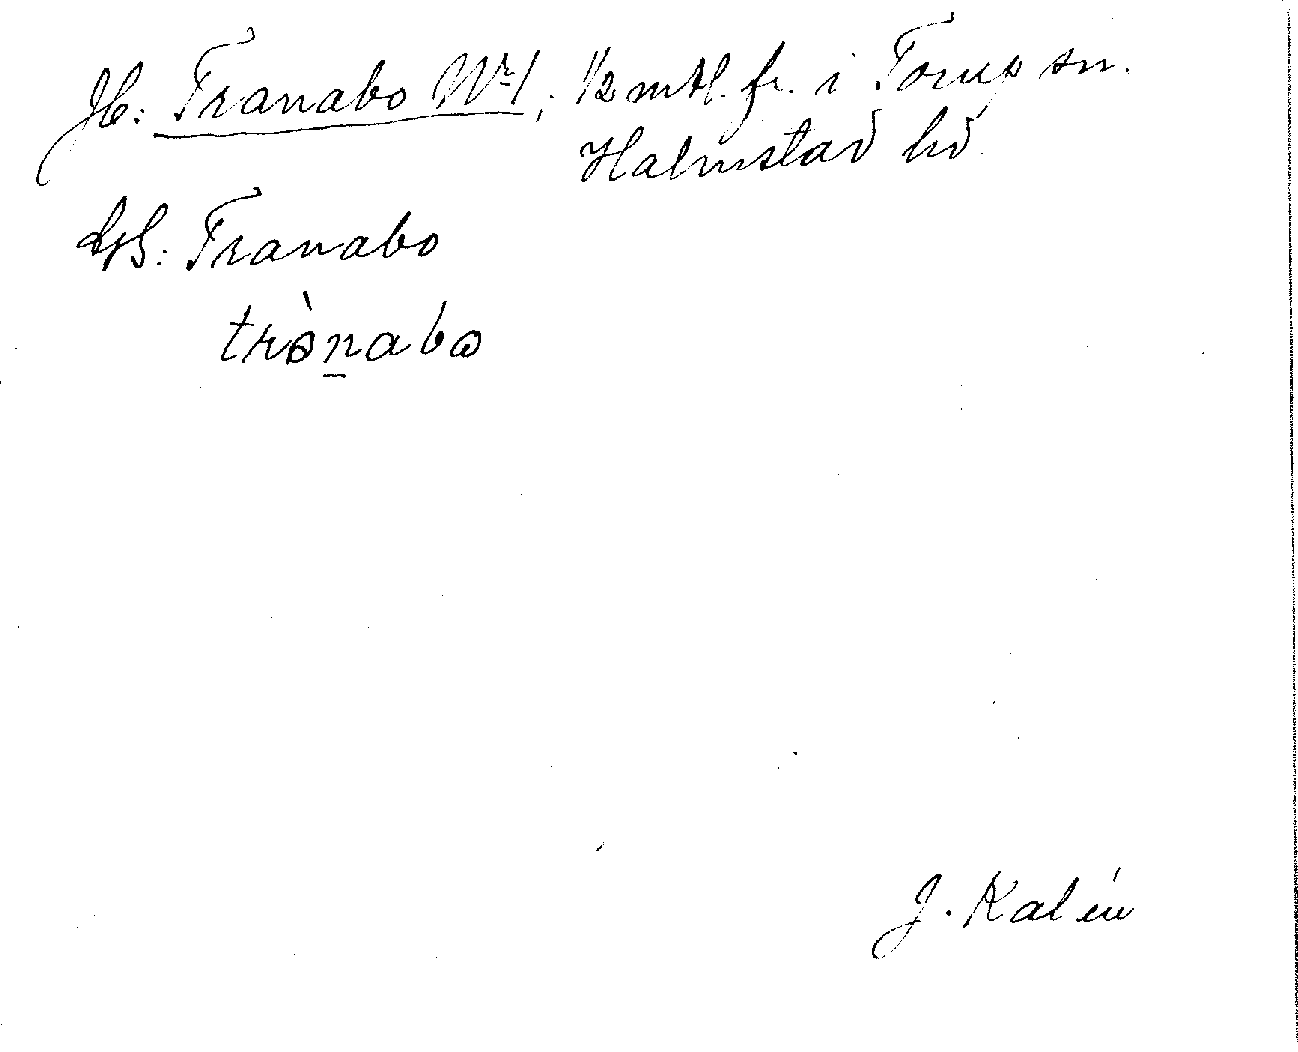 Jb: Tranabo Nr 1, 1/2 mtl. fr. i Torup sn.
Halmstad hd
GS: Tranabo
trànabo
J. Kalén